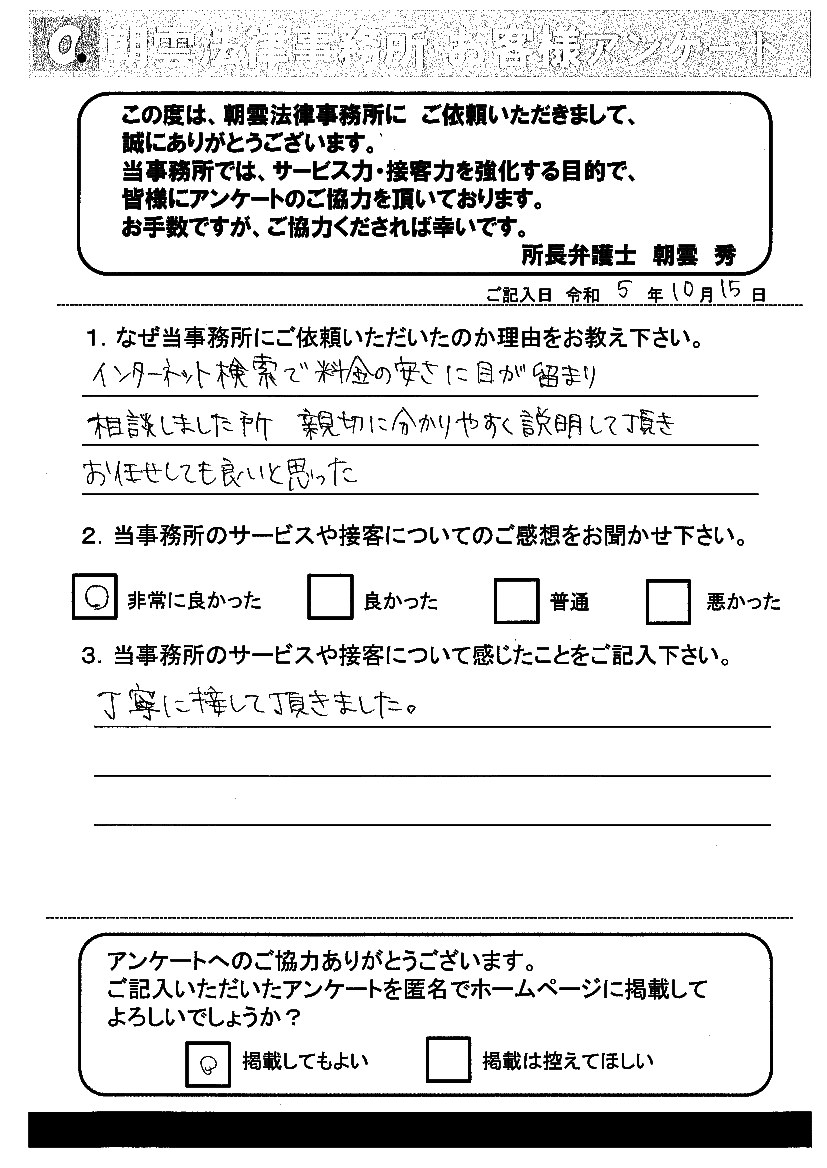 a. 朝雲法律事務所 お客様アンケート
この度は、朝雲法律事務所に ご依頼いただきまして、
誠にありがとうございます。
当事務所では、サービス力・接客力を強化する目的で、
皆様にアンケートのご協力を頂いております。
お手数ですが、ご協力くだされば幸いです。
所長弁護士 朝雲 秀
ご記入日 令和 5 年 10 月 15 日
1. なぜ当事務所にご依頼いただいたのか理由をお教え下さい。
インターネット検索で料金の安さに目が留まり
相談しました所 親切に分かりやすく説明して頂き
お任せしても良いと思った
2. 当事務所のサービスや接客についてのご感想をお聞かせ下さい。
○ 非常に良かった 良かった 普通 悪かった
3. 当事務所のサービスや接客について感じたことをご記入下さい。
丁寧に接して頂きました。
アンケートへのご協力ありがとうございます。
ご記入いただいたアンケートを匿名でホームページに掲載して
よろしいでしょうか?
○ 掲載してもよい 掲載は控えてほしい